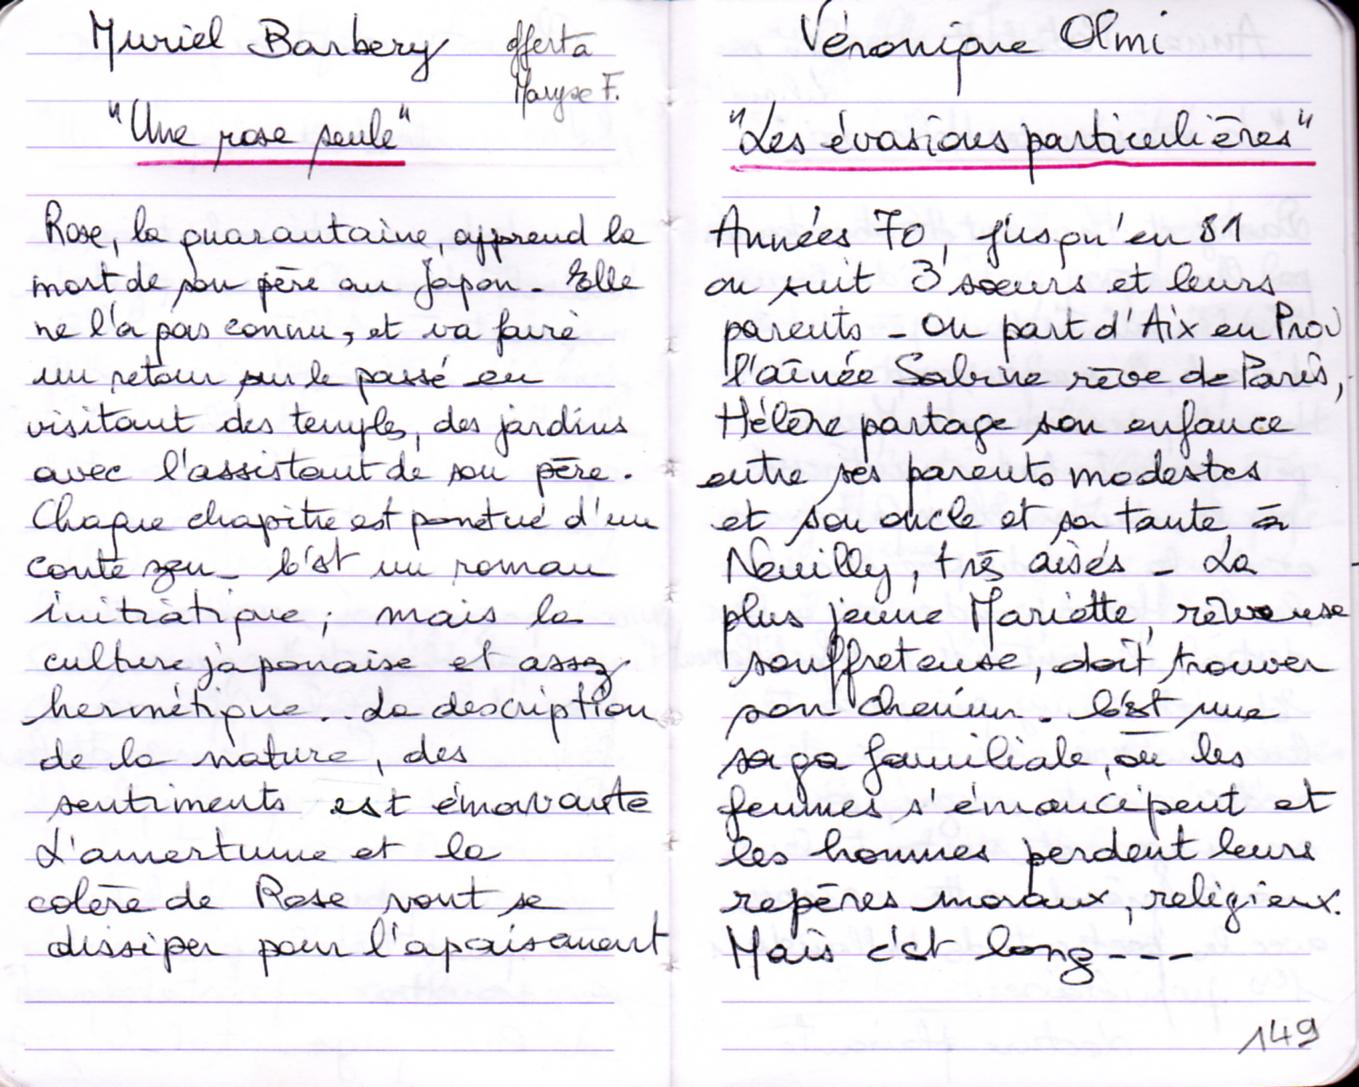 Muriel Barbery
offert à
Maryse F.
"Une rose seule"
Rose, la quarantaine, apprend la
mort de son père au Japon - Elle
ne l'a pas connu, et va faire
un retour sur le passé en
visitant des temples, des jardins
avec l'assistant de son père.
Chaque chapitre est ponctué d'un
conte zen - C'est un roman
initiatique ; mais la
culture japonaise et assez
hermétique.. La description
de la nature, des
sentiments est émouvante
L'amertume et la
colère de Rose vont se
dissiper pour l'apaisement
Véronique Olmi
"Les évasions particulières"
Années 70, jusqu'en 81
on suit 3 sœurs et leurs
parents - On part d'Aix en Prov
l'aînée Sabine rêve de Paris,
Hélène partage son enfance
entre ses parents modestes
et son oncle et sa tante à
Neuilly, très aisés - La
plus jeune Mariette, rêveuse
souffreteuse, doit trouver
son chemin - C'est une
saga familiale, où les
femmes s'émancipent et
les hommes perdent leurs
repères moraux, religieux.
Mais c'est long ---
149